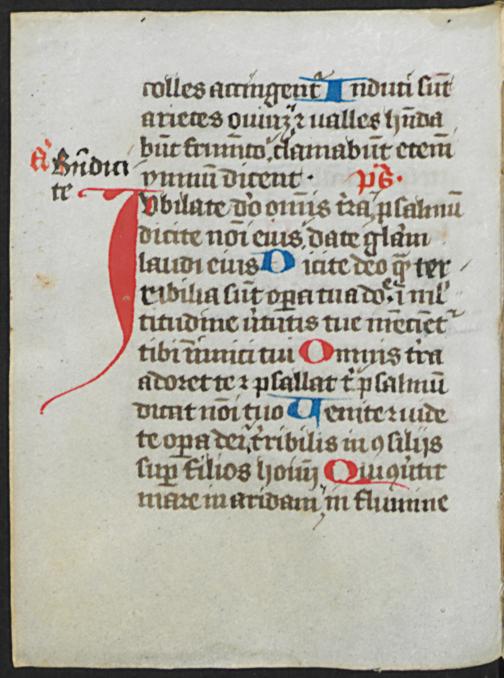 colles accingent᷑ Induti sūt
arietes ouiuꝫ ⁊ ualles hn̄da
būt frumēto, clamabūt etem̄
ymnū dicent · pꝰs·
a᷑ Bn̄dici
te
Jubilate dō om̄is t̄ra, psalmū
dicite noī eius, date glām
laudi eius Dicite deo q̄ ter
ribilia sūt oꝑa tua dō, ī ml̓
titudine u̓tutis tue mēciēt᷑
tibi inimici tui Omnis t̄ra
adoret te ⁊ psallat t̓ psalmū
dicat noī tuo Uenite ⁊ uide
te oꝑa dei, t̓ribilis in ꝯsilijs
suꝑ filios hoīm Qui ꝯu̓tit
mare in aridam, in flumine